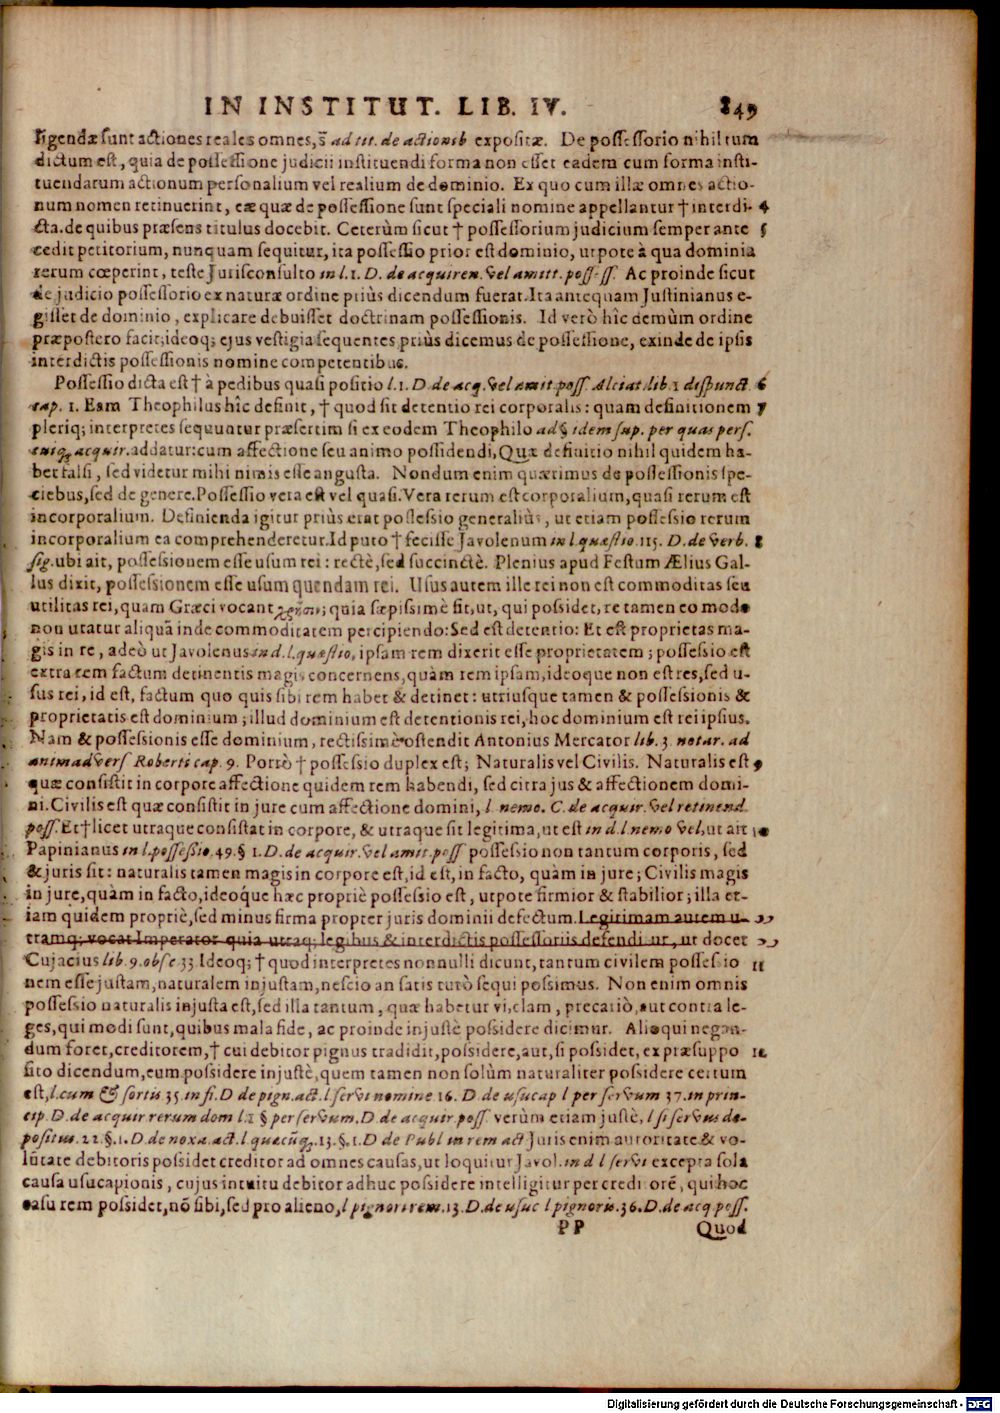 IN INSTITUT. LIB. IV. 849
rigendæ sunt actiones reales omnes, s̃ ad tit. de actionib expositæ. De possessorio nihil tum
dictum est, quia de possessione judicii instituendi forma non esset eadem cum forma insti-
tuendarum actionum personalium vel realium de dominio. Ex quo cum illæ omnes actio-
num nomen retinuerint, eæ quæ de possessione sunt speciali nomine appellantur † interdi- 4
cta. de quibus præsens titulus docebit. Ceterùm sicut † possessorium judicium semper ante 5
cedit petitorium, nunquam sequitur, ita possessio prior est dominio, utpote à qua dominia
rerum cœperint, teste Jurisconsulto in l. 1. D. de acquiren. vel amitt. poss-ss. Ac proinde sicut
de judicio possessorio ex naturæ ordine priùs dicendum fuerat. Ita antequam Justinianus e-
gisset de dominio, explicare debuisset doctrinam possessionis. Id verò hîc demùm ordine
præpostero facit; ideoq; ejus vestigia sequentes priùs dicemus de possessione, exinde de ipsis
interdictis possessionis nomine competentibus.
Possessio dicta est † à pedibus quasi positio l. 1. D. de acq. vel amit. poss. Alciat. lib. 1 dispunct. 6
cap. 1. Eam Theophilus hîc definit, † quod sit detentio rei corporalis: quam definitionem 7
pleriq; interpretes sequuntur præsertim si ex eodem Theophilo ad § idem sup. per quas pers.
cuiq; acquir. addatur: cum affectione seu animo possidendi, Quæ definitio nihil quidem ha-
bet falsi, sed videtur mihi nimis esse angusta. Nondum enim quærimus de possessionis spe-
ciebus, sed de genere. Possessio vera est vel quasi. Vera rerum est corporalium, quasi rerum est
incorporalium. Definienda igitur priùs erat possessio generaliùs, ut etiam possessio rerum
incorporalium ea comprehenderetur. Id puto † fecisse Javolenum in l. quæstio. 115. D. de verb. 8
sig. ubi ait, possessionem esse usum rei: rectè, sed succinctè. Plenius apud Festum Ælius Gal-
lus dixit, possessionem esse usum quendam rei. Usus autem ille rei non est commoditas seu
utilitas rei, quam Græci vocant χρῆσιν; quia sæpissimè fit, ut, qui possidet, re tamen eo modo
non utatur aliquâ inde commoditatem percipiendo: Sed est detentio: Et est proprietas ma-
gis in re, adeò ut Javolenus in d. l. quæstio, ipsam rem dixerit esse proprietatem; possessio est
extra rem factum detinentis magis concernens, quàm rem ipsam, ideoque non est res, sed u-
sus rei, id est, factum quo quis sibi rem habet & detinet: utriusque tamen & possessionis &
proprietatis est dominium; illud dominium est detentionis rei, hoc dominium est rei ipsius.
Nam & possessionis esse dominium, rectissimè ostendit Antonius Mercator lib. 3. notar. ad
animadvers Roberti cap. 9. Porrò † possessio duplex est; Naturalis vel Civilis. Naturalis est 9
quæ consistit in corpore affectione quidem rem habendi, sed citra jus & affectionem domi-
ni. Civilis est quæ consistit in jure cum affectione domini, l nemo. C. de acquir. vel retinend.
poss. Et † licet utraque consistat in corpore, & utraque sit legitima, ut est in d. l nemo vel, ut ait 10
Papinianus in l. possessio. 49. § 1. D. de acquir. vel amit. poss possessio non tantum corporis, sed
& juris sit: naturalis tamen magis in corpore est, id est, in facto, quàm in jure; Civilis magis
in jure, quàm in facto, ideoque hæc propriè possessio est, utpote firmior & stabilior; illa et-
iam quidem propriè, sed minus firma propter juris dominii defectum. Legitimam autem u-
tramq; vocat Imperator quia utraq; legibus & interdictis possessoriis defendi ur, ut docet
Cujacius lib. 9. obse. 33 Ideoq; † quod interpretes nonnulli dicunt, tantum civilem possessio 11
nem esse justam, naturalem injustam, nescio an satis tutò sequi possimus. Non enim omnis
possessio naturalis injusta est, sed illa tantum, quæ habetur vi, clam, precariò, aut contra le-
ges, qui modi sunt, quibus mala fide, ac proinde injustè possidere dicimur. Alioqui negan-
dum foret, creditorem, † cui debitor pignus tradidit, possidere, aut, si possidet, ex præsuppo 12
sito dicendum, eum possidere injustè, quem tamen non solùm naturaliter possidere certum
est, l. cum & sortis 35. in fi. D de pign. act. l. servi nomine 16. D de usucap l per servum 37. in prin-
cip. D. de acquir rerum dom l. 1 § per servum. D de acquir poss. verùm etiam justè, l si servus de-
positus. 22. §. 1. D. de noxa. act. l quæcūq; 13. §. 1. D de Publ in rem act Juris enim autoritate & vo-
lūtate debitoris possidet creditor ad omnes causas, ut loquitur Javol. in d l servi excepta sola
causa usucapionis, cujus intuitu debitor adhuc possidere intelligitur per credi orē, qui hoc
casu rem possidet, nō sibi, sed pro alieno, l pignori rem. 13. D. de usuc l pignoris. 36. D. de acq poss.
PP Quod
Digitalisierung gefördert durch die Deutsche Forschungsgemeinschaft - DFG